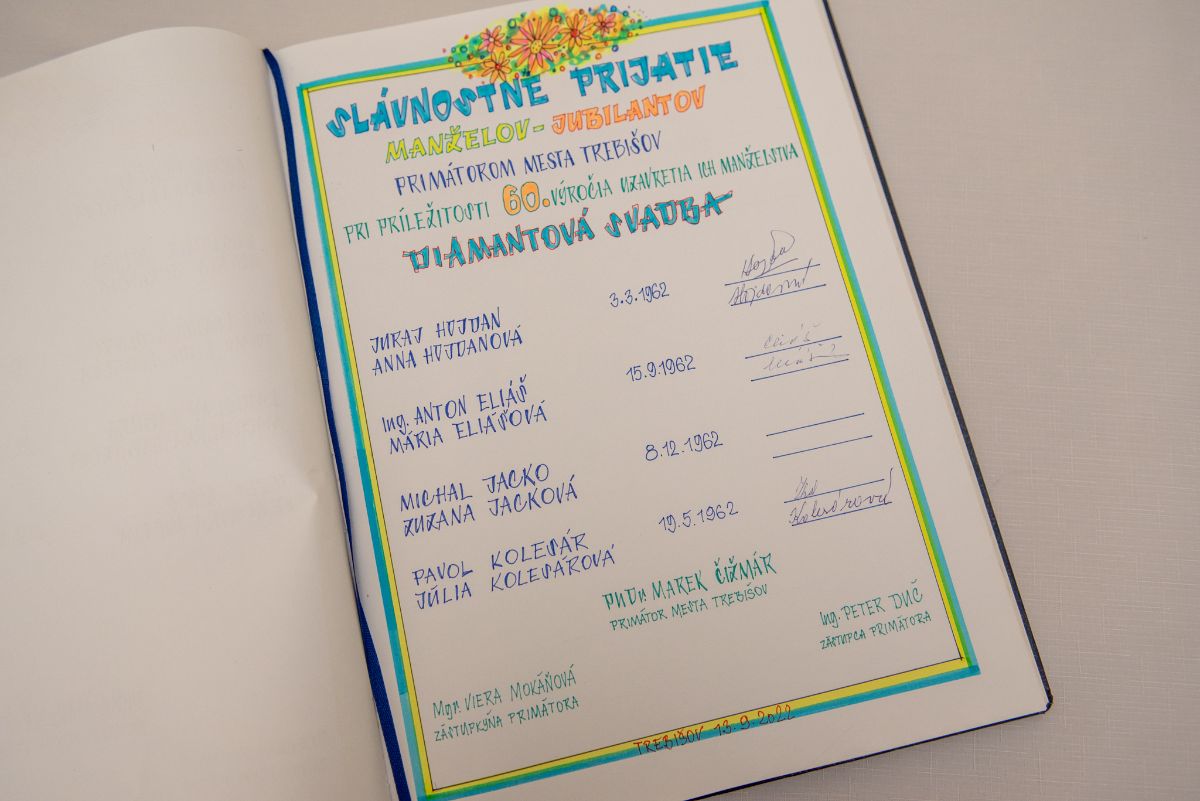 SLÁVNOSTNÉ PRIJATIE
MANŽELOV - JUBILANTOV
PRIMÁTOROM MESTA TREBIŠOV
PRI PRÍLEŽITOSTI 60. VÝROČIA UZAVRETIA ICH MANŽELSTVA
DIAMANTOVÁ SVADBA
JURAJ HOJDAN 3.3.1962
ANNA HOJDANOVÁ
Ing. ANTON ELIÁŠ 15.9.1962
MÁRIA ELIÁŠOVÁ
MICHAL JACKO 8.12.1962
ZUZANA JACKOVÁ
PAVOL KOLESÁR 19.5.1962
JÚLIA KOLESÁROVÁ Kolesárová
PhDr. MAREK ČIŽMÁR
PRIMÁTOR MESTA TREBIŠOV
Ing. PETER DUČ
ZÁSTUPCA PRIMÁTORA
Mgr. VIERA MOKÁŇOVÁ
ZÁSTUPKYŇA PRIMÁTORA
TREBIŠOV 13.9.2022